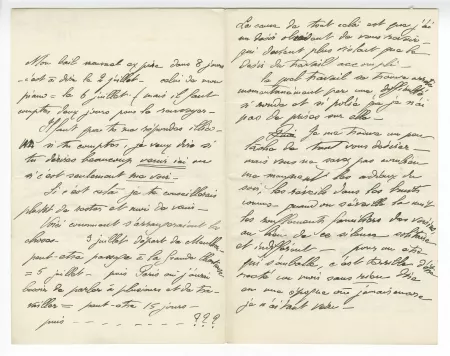 Mon bail normal expire dans 8 jours
c'est à dire le 2 juillet - celui de mon
piano = le 6 juillet - (mais il faut
compter deux jours pour le
Il faut pas tu me répondes
si tu comptes, je veux dire si
tu désires beaucoup venir ici ou
si c'est seulement me voir -
Si c'est cela je te conseillerais
plutôt de rester et moi de venir -
Voici comment s'arrangeraient les
choses. 3 juillet départ de
peut-être passage à la Grande
= 5 juillet - puis Paris où j'aurai
besoin de parler à plusieurs et de tra-
vailler = peut-être 15 jours -
puis - - - - - - - ???
La cause de tout cela est que j'ai
un désir obsédant de vous revoir -
qui devient plus violent que le
désir du travail accompli -
le joli travail se trouve arrêté
momentanément par une difficulté
si ronde et si polie que je n'ai
pas de prise sur elle -
Je me trouve un peu
lâche de tout vous
mais vous ne savez pas combien
me manquent les
soir, les réveils dans les
connus - quand on réveille la nuit
les ronflements familiers des voisins
au lieu de ce silence solitaire
et indifférent - pour un être
qui s'ausculte, c'est terrible d'être
resté un mois sans rien dire
en une époque où jamais
je n'étais